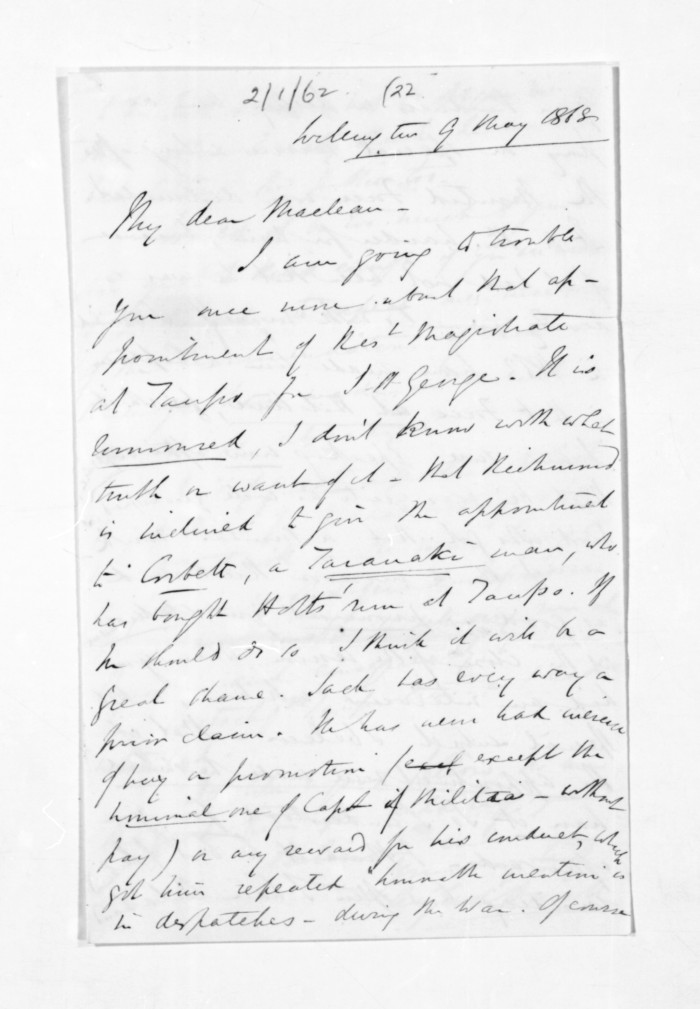 2/1/62 (22
Wellington 9 May 1868
My dear Maclean -
I am going to trouble
you once more about that ap-
pointment of Rest Magistrate
at Taupo for J N George. It is
rumoured, I don't know with what
truth or want of it - that Richmond
is inclined to give the appointment
to Corbett, a Taranaki man, who
has bought Holts' run at Taupo. If
he should do so I think it will be a
great shame. Jack has every way a
prior claim. He has never had increase
of pay or promotion (except the
nominal one of Capt of Militia - without
pay) or any reward for his conduct, which
got him repeated honorable mention is
in despatches - during the War. Of course